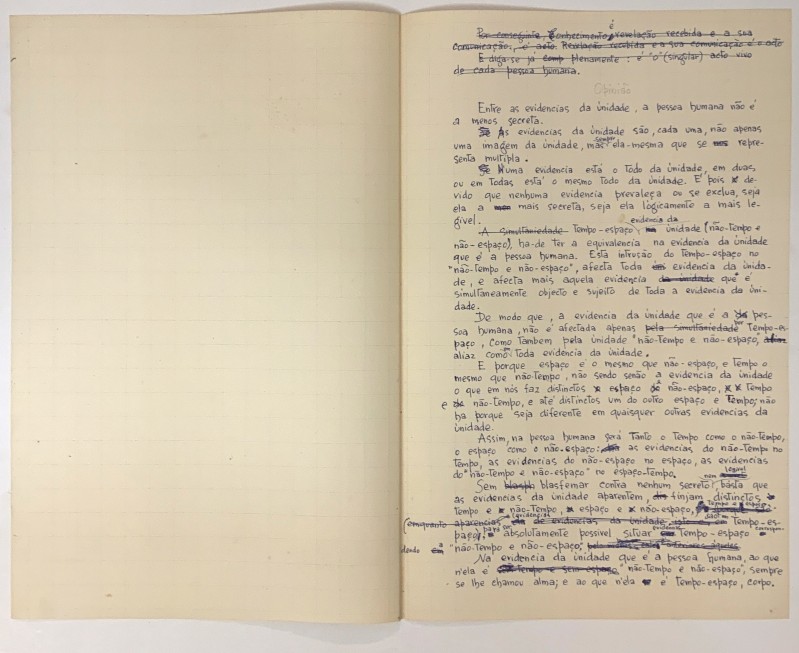 Por conseguinte, Conhecimento, é revelação recebida e a sua
comunicação, é acto. Revelação recebida e a sua comunicação é o acto
E diga-se já plenamente: é "o" (singular) acto vivo
de cada pessoa humana.
Opinião
Entre as evidencias da únidade, a pessoa humana não é
a menos secreta.
As evidencias da únidade são, cada uma, não apenas
uma imagem da únidade, mas sempre ela-mesma que se repre-
senta multipla.
Numa evidencia está o Todo da únidade, em duas
ou em Todas está o mesmo Todo da únidade. E' pois de-
vido que nenhuma evidencia prevaleça ou se exclua, seja
ela a mais secreta, seja ela lògicamente a mais le-
gível.
evidencia da
A simultaniedade Tempo-espaço, únidade (não-tempo e
não-espaço), ha-de ter a equivalencia na evidencia da únidade
que é a pessoa humana. Esta intrusão do Tempo-espaço no
"não-Tempo e não-espaço", afecta Toda evidencia da únida-
de, e afecta mais aquela evidencia da únidade que é
simultaneamente objecto e sujeito de toda a evidencia da úni-
dade.
De modo que, a evidencia da únidade que é a pes-
soa humana, não é afectada apenas pela simultaniedade por Tempo-es-
paço, como Tambem pela únidade "não-Tempo e não-espaço",
aliaz como Toda evidencia da únidade.
E porque espaço é o mesmo que não-espaço, e Tempo o
mesmo que não-Tempo, não sendo senão a evidencia da únidade
o que em nós faz distinctos espaço não-espaço, Tempo
e não-Tempo, e até distinctos um do outro espaço e Tempo, não
ha porque seja diferente em quaisquer outras evidencias da
únidade.
Assim, na pessoa humana será Tanto o Tempo como o não-Tempo,
o espaço como o não-espaço: as evidencias do não-Tempo no
Tempo, as evidencias do não-espaço no espaço, as evidencias
do "não-Tempo e não-espaço" no espaço-Tempo.
Sem blasfemar contra nenhum secreto nem legivel, basta que
as evidencias da únidade aparentem, finjam distinctos
Tempo e não-Tempo, espaço e não-espaço, Tempo e espaço
(emquanto aparencias evidencias de evidencias da únidade, Tempo-es-
paço), para ser absolutamente possivel situar evidente Tempo-espaço correspon-
dendo a "não-Tempo e não-espaço;
Na evidencia da únidade que é a pessoa humana, ao que
n'ela é Tempo e sem espaço "não-Tempo e não-espaço", sempre
se lhe chamou alma; e ao que n'ela é Tempo-espaço, corpo.